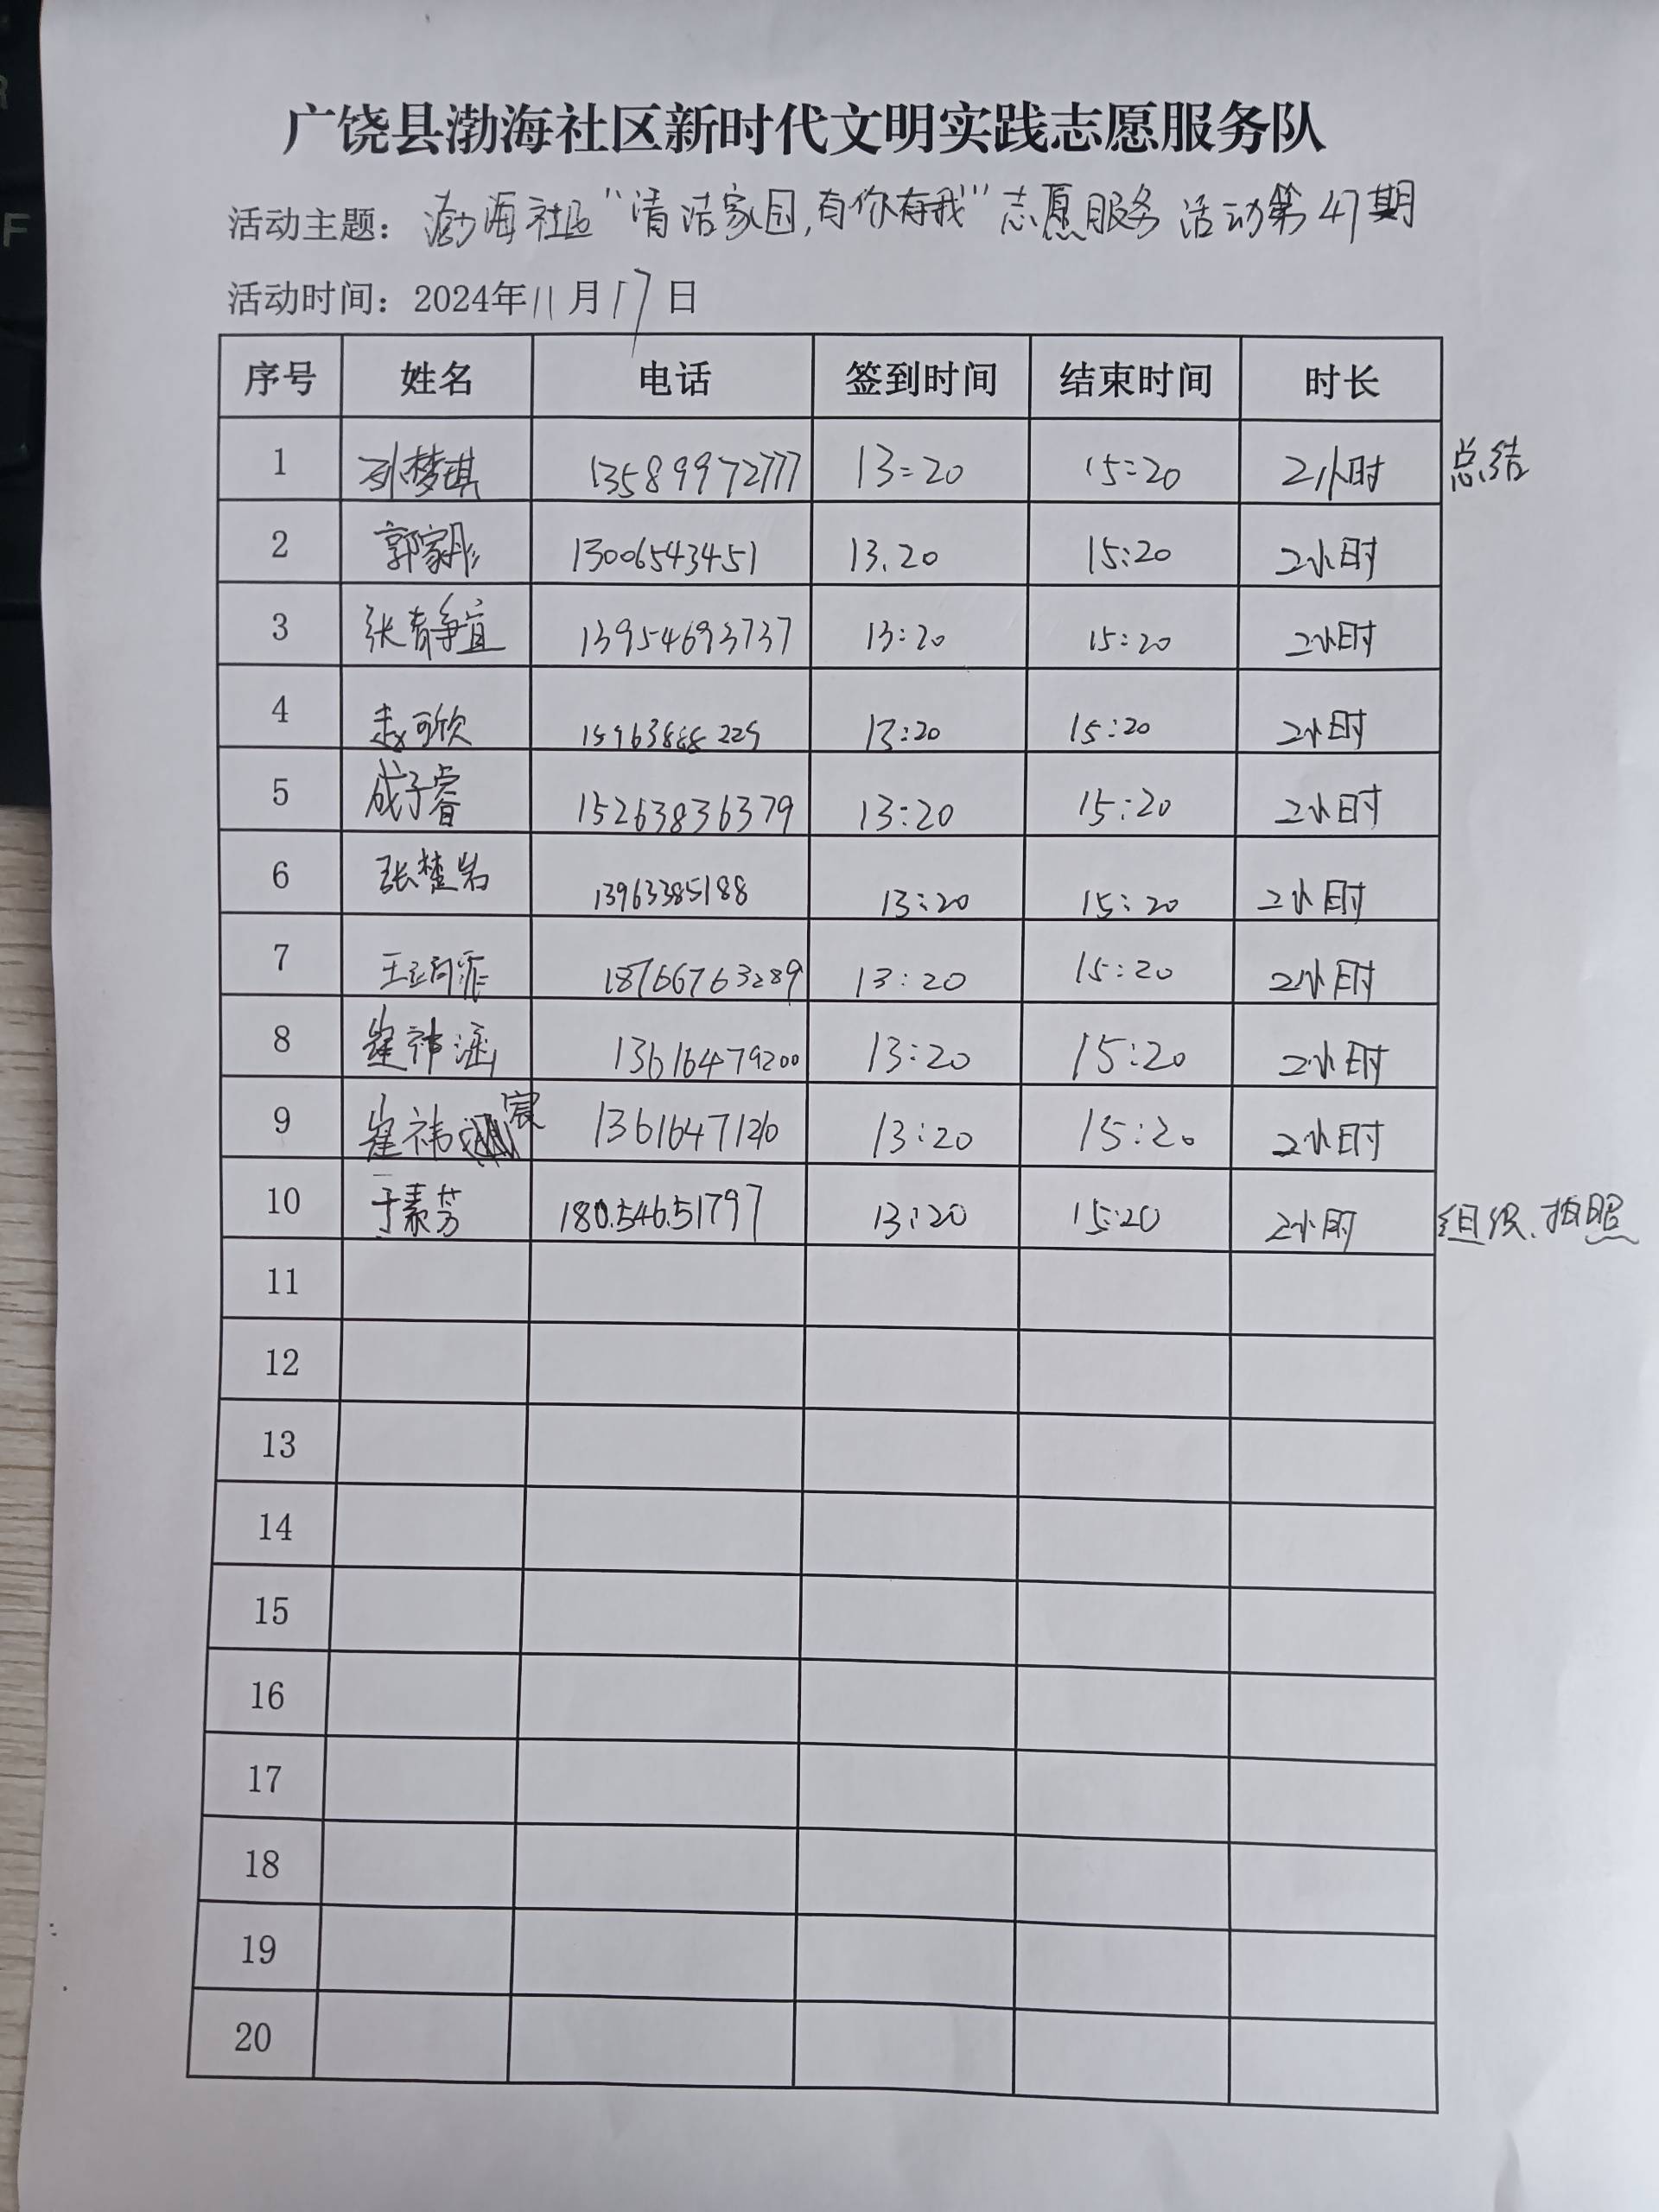 广饶县渤海社区新时代文明实践志愿服务队
活动主题：渤海社区“清洁家园,有你有我”志愿服务活动第47期
活动时间：2024年11月17日
序号 姓名 电话 签到时间 结束时间 时长
1 孙梦琪 13589972777 13:20 15:20 2小时 总结
2 郭家彤 13006543451 13.20 15:20 2小时
3 张静宜 13954693737 13:20 15:20 2小时
4 赵可欣 15963888229 13:20 15:20 2小时
5 成子睿 15263836379 13:20 15:20 2小时
6 张楚岩 13963385188 13:20 15:20 2小时
7 18766763289 13:20 15:20 2小时
8 崔祎涵 13616479200 13:20 15:20 2小时
9 崔祎宸 13616471210 13:20 15:20 2小时
10 于素芳 180.546.51797 13:20 15:20 2小时 组织、拍照
11
12
13
14
15
16
17
18
19
20
F